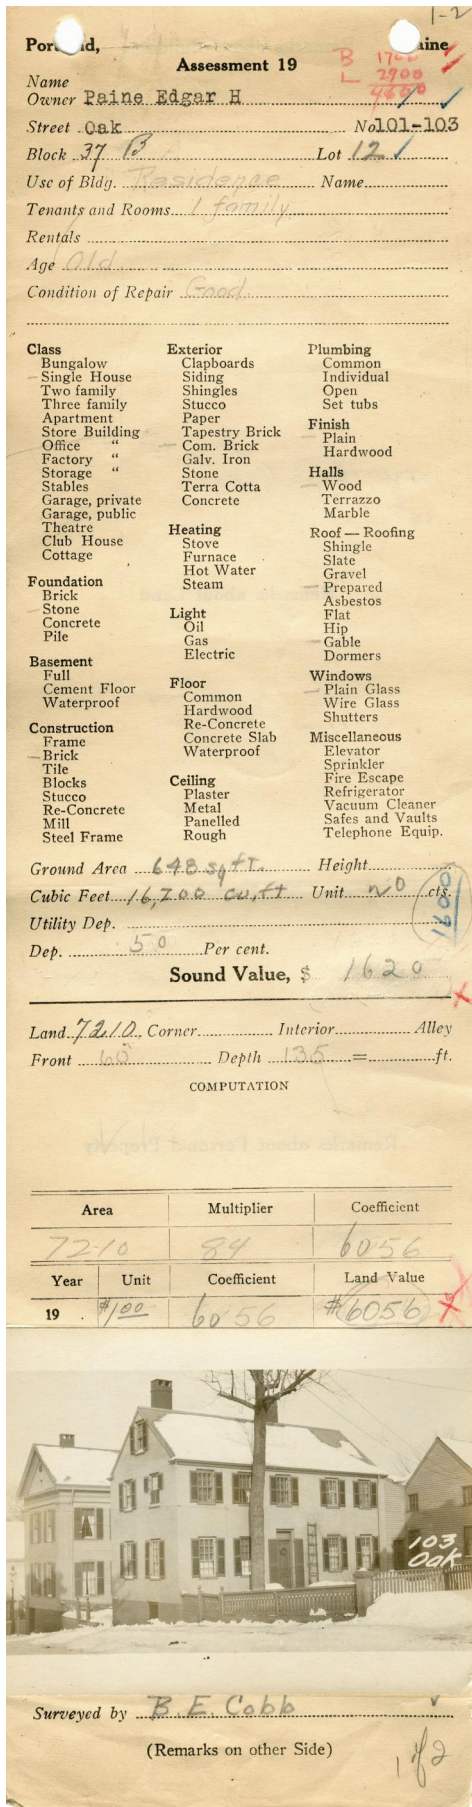 1-2
Portland, Maine
Assessment 19
B 1700
L 2900
4600
Name
Owner Paine Edgar H
Street Oak No101-103
Block 37 B Lot 12
Use of Bldg. Residence Name
Tenants and Rooms 1 family
Rentals
Age Old
Condition of Repair Good
Class
Bungalow
Single House
Two family
Three family
Apartment
Store Building
Office "
Factory "
Storage "
Stables
Garage, private
Garage, public
Theatre
Club House
Cottage
Foundation
Brick
Stone
Concrete
Pile
Basement
Full
Cement Floor
Waterproof
Construction
Frame
Brick
Tile
Blocks
Stucco
Re-Concrete
Mill
Steel Frame
Exterior
Clapboards
Siding
Shingles
Stucco
Paper
Tapestry Brick
Com. Brick
Galv. Iron
Stone
Terra Cotta
Concrete
Heating
Stove
Furnace
Hot Water
Steam
Light
Oil
Gas
Electric
Floor
Common
Hardwood
Re-Concrete
Concrete Slab
Waterproof
Ceiling
Plaster
Metal
Panelled
Rough
Plumbing
Common
Individual
Open
Set tubs
Finish
Plain
Hardwood
Halls
Wood
Terrazzo
Marble
Roof — Roofing
Shingle
Slate
Gravel
Prepared
Asbestos
Flat
Hip
Gable
Dormers
Windows
Plain Glass
Wire Glass
Shutters
Miscellaneous
Elevator
Sprinkler
Fire Escape
Refrigerator
Vacuum Cleaner
Safes and Vaults
Telephone Equip.
Ground Area 648 sq ft. Height
Cubic Feet 16,200 cu.ft Unit 20 cts.
Utility Dep.
Dep. 50 Per cent.
Sound Value, $ 1620
Land 7210 Corner Interior Alley
Front 60 Depth 135 = ft.
COMPUTATION
Area Multiplier Coefficient
7210 84 6056
Year Unit Coefficient Land Value
19 $1.00 6056 $6056
103
Oak
Surveyed by B. E. Cobb
(Remarks on other Side)
1 of 2